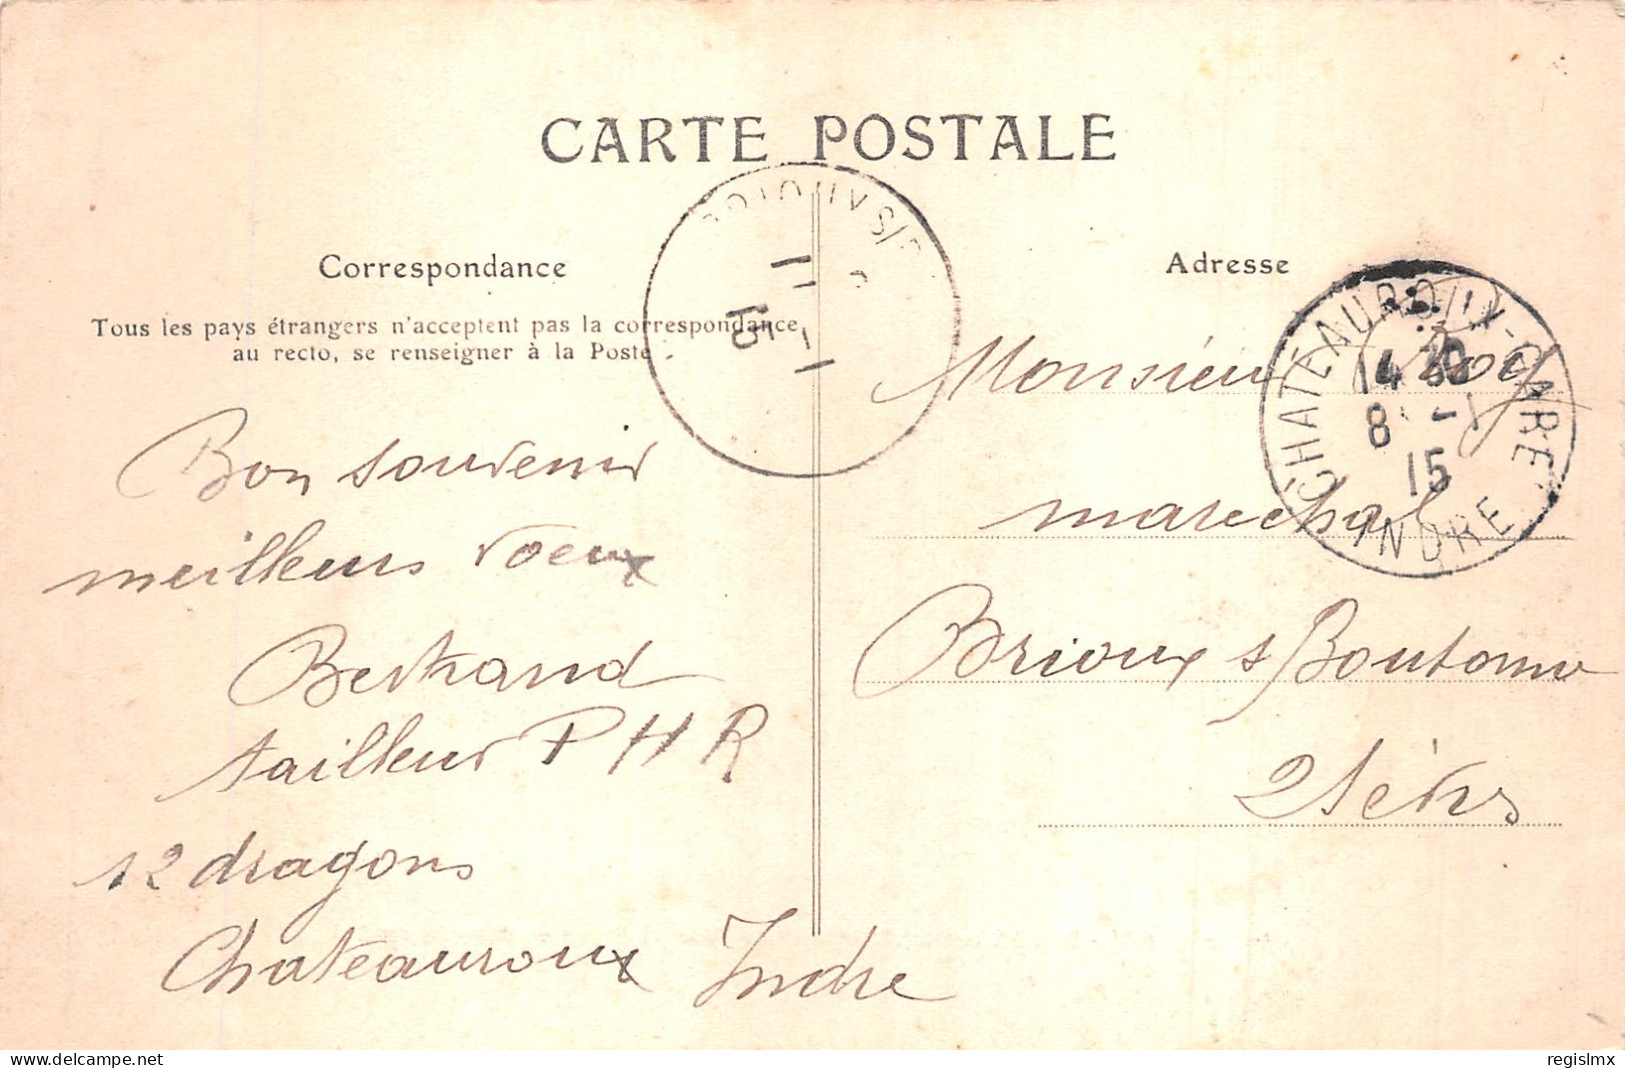 CARTE POSTALE
Correspondance
Tous les pays étrangers n'acceptent pas la correspondance
au recto, se renseigner à la Poste
Bon souvenir
meilleurs voeux
Bertrand
tailleur P H R
12 dragons
Chateauroux Indre
11 -1
15
Adresse
Monsieur Roy
marechal
Brioux s Boutonne
2 Sèvres
CHATEAUROUX-GARE
14 30
8 -1
15
INDRE
delcampe.net
regislmx